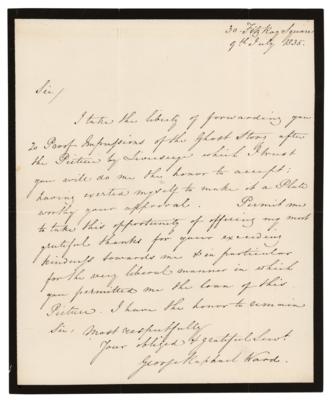 30 Fitz Roy Square
9th July 1835.
Sir/
I take the liberty of forwarding you
20 Proof Impressions of the Ghost Story after
the Picture by Liverseege which I trust
you will do me the honor to accept;
having exerted myself to make it a Plate
worthy your approval. Permit me
to take this opportunity of offering my most
grateful thanks for your exceeding
kindness towards me & in particular
for the very liberal manner in which
you permitted me the loan of this
Picture. I have the honor to remain
Sir, Most respectfully
Your obliged & grateful Servt.
George Raphael Ward.